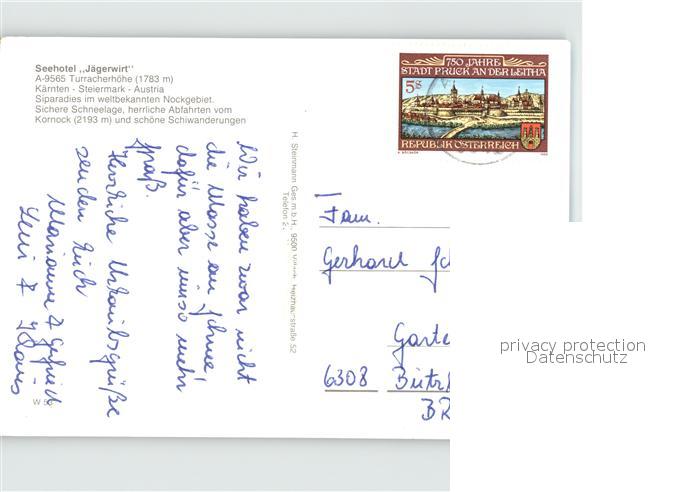 Seehotel ,,Jägerwirt"
A-9565 Turracherhöhe (1783 m)
Kärnten - Steiermark - Austria
Siparadies im weltbekannten Nockgebiet.
Sichere Schneelage, herrliche Abfahrten vom
Kornock (2193 m) und schöne Schiwanderungen
Wir haben zwar nicht
die Masse an Schnee,
dafür aber umso mehr
Spaß.
Herzliche Urlaubsgrüße
senden Euch
Marianne &
&
W
H. Steinmann Ges.m.b.H., 9500
straße 52
Telefon
750 JAHRE
STADT BRUCK AN DER LEITHA
5s
REPUBLIK ÖSTERREICH
Fam.
Gerhard
Garte
6308
BR
privacy protection
Datenschutz